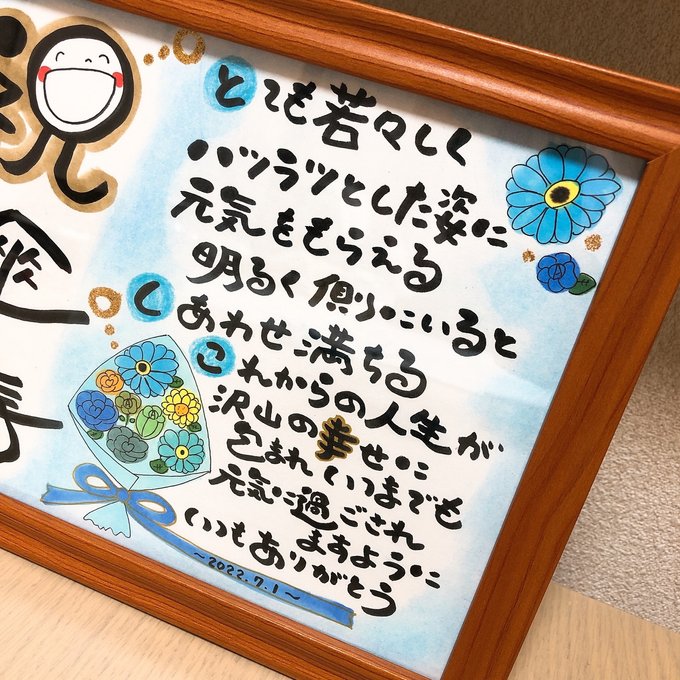 祝
傘
寿
とても若々しく
ハツラツとした姿に
元気をもらえる
明るく側にいると
しあわせ満ちる
これからの人生が
沢山の幸せに
包まれいつまでも
元気に過ごされ
ますように
いつもありがとう
~2022.7.1~